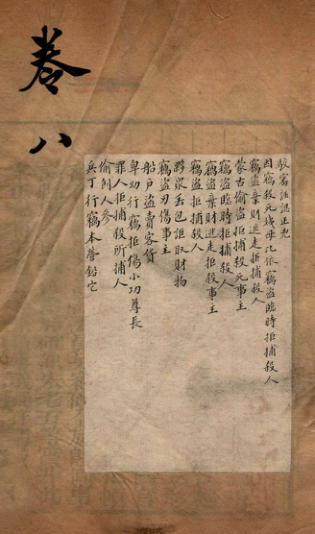 卷八
駁審法誤正兇
因竊殺死賊母比依竊盜臨時拒捕殺人
竊盜棄財逃走拒捕殺人
蒙古偷盜拒捕殺死事主
竊盜臨時拒捕殺人
竊盜棄財逃走拒殺事主
竊盜拒捕殺人
夥衆丟包誆取財物
竊盜刃傷事主
船戶盜賣客貨
卑幼行竊拒傷小功尊長
罪人拒捕殺所捕人
偷刨人參
兵丁行竊本營鉛